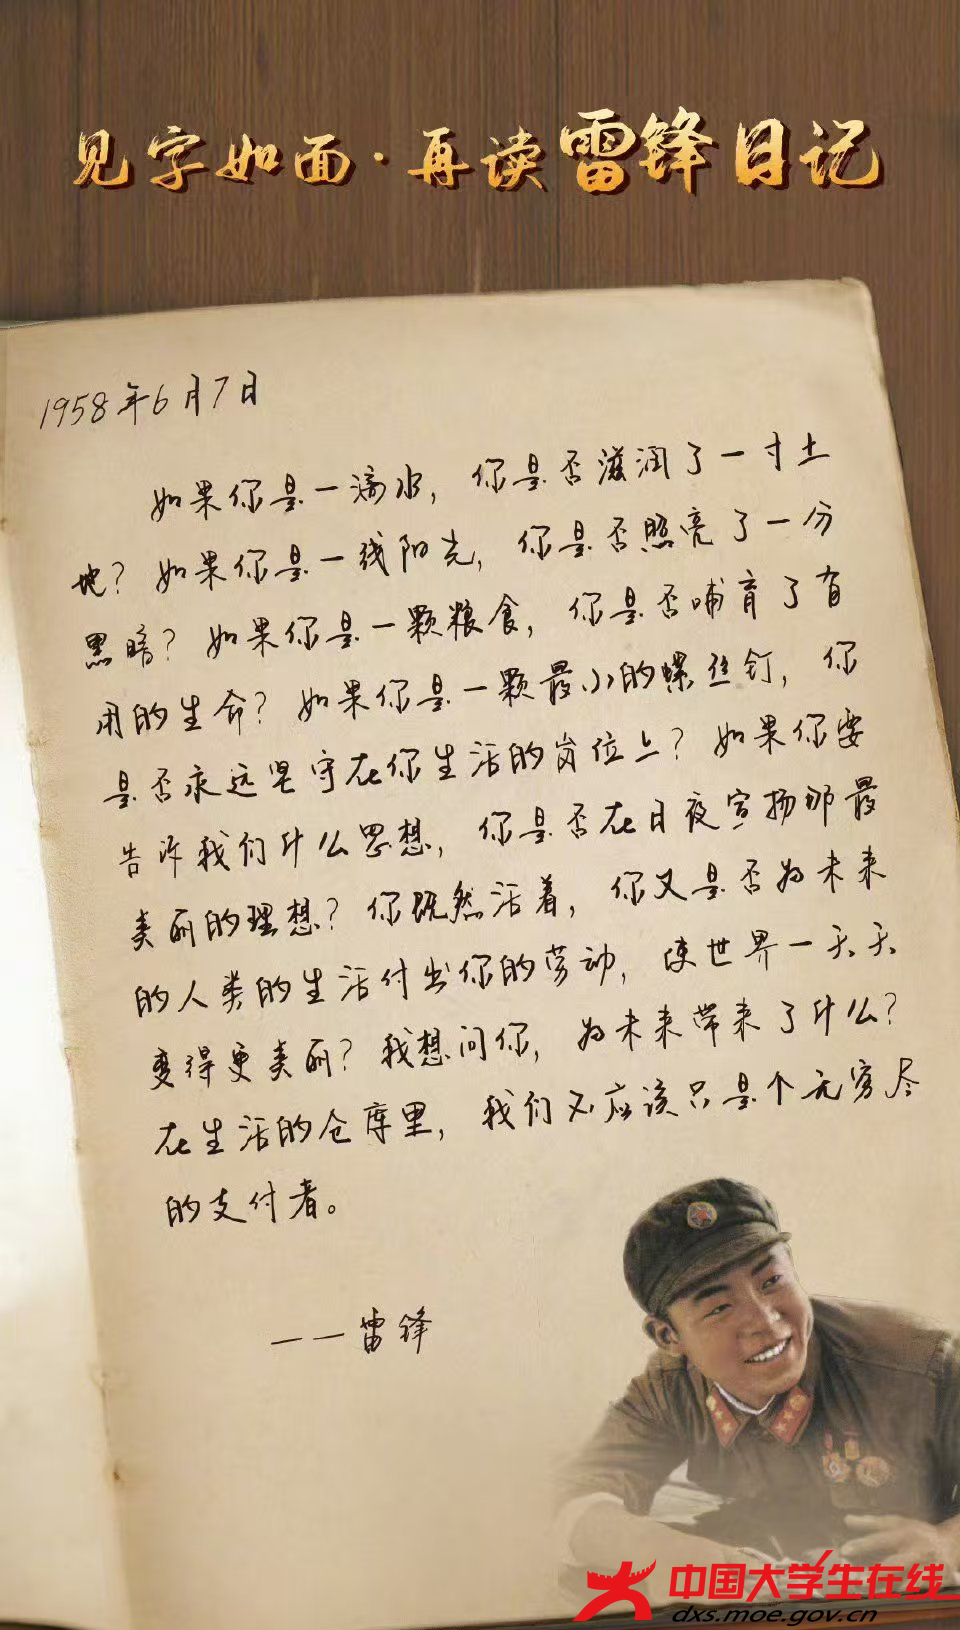 见字如面·再读雷锋日记
1958年6月7日
如果你是一滴水，你是否滋润了一寸土
地？如果你是一线阳光，你是否照亮了一分
黑暗？如果你是一颗粮食，你是否哺育了有
用的生命？如果你是一颗最小的螺丝钉，你
是否永远坚守在你生活的岗位上？如果你要
告诉我们什么思想，你是否在日夜宣扬那最
美丽的理想？你既然活着，你又是否为未来
的人类的生活付出你的劳动，使世界一天天
变得更美丽？我想问你，为未来带来了什么？
在生活的仓库里，我们不应该只是个无穷尽
的支付者。
——雷锋
中国大学生在线
dxs.moe.gov.cn